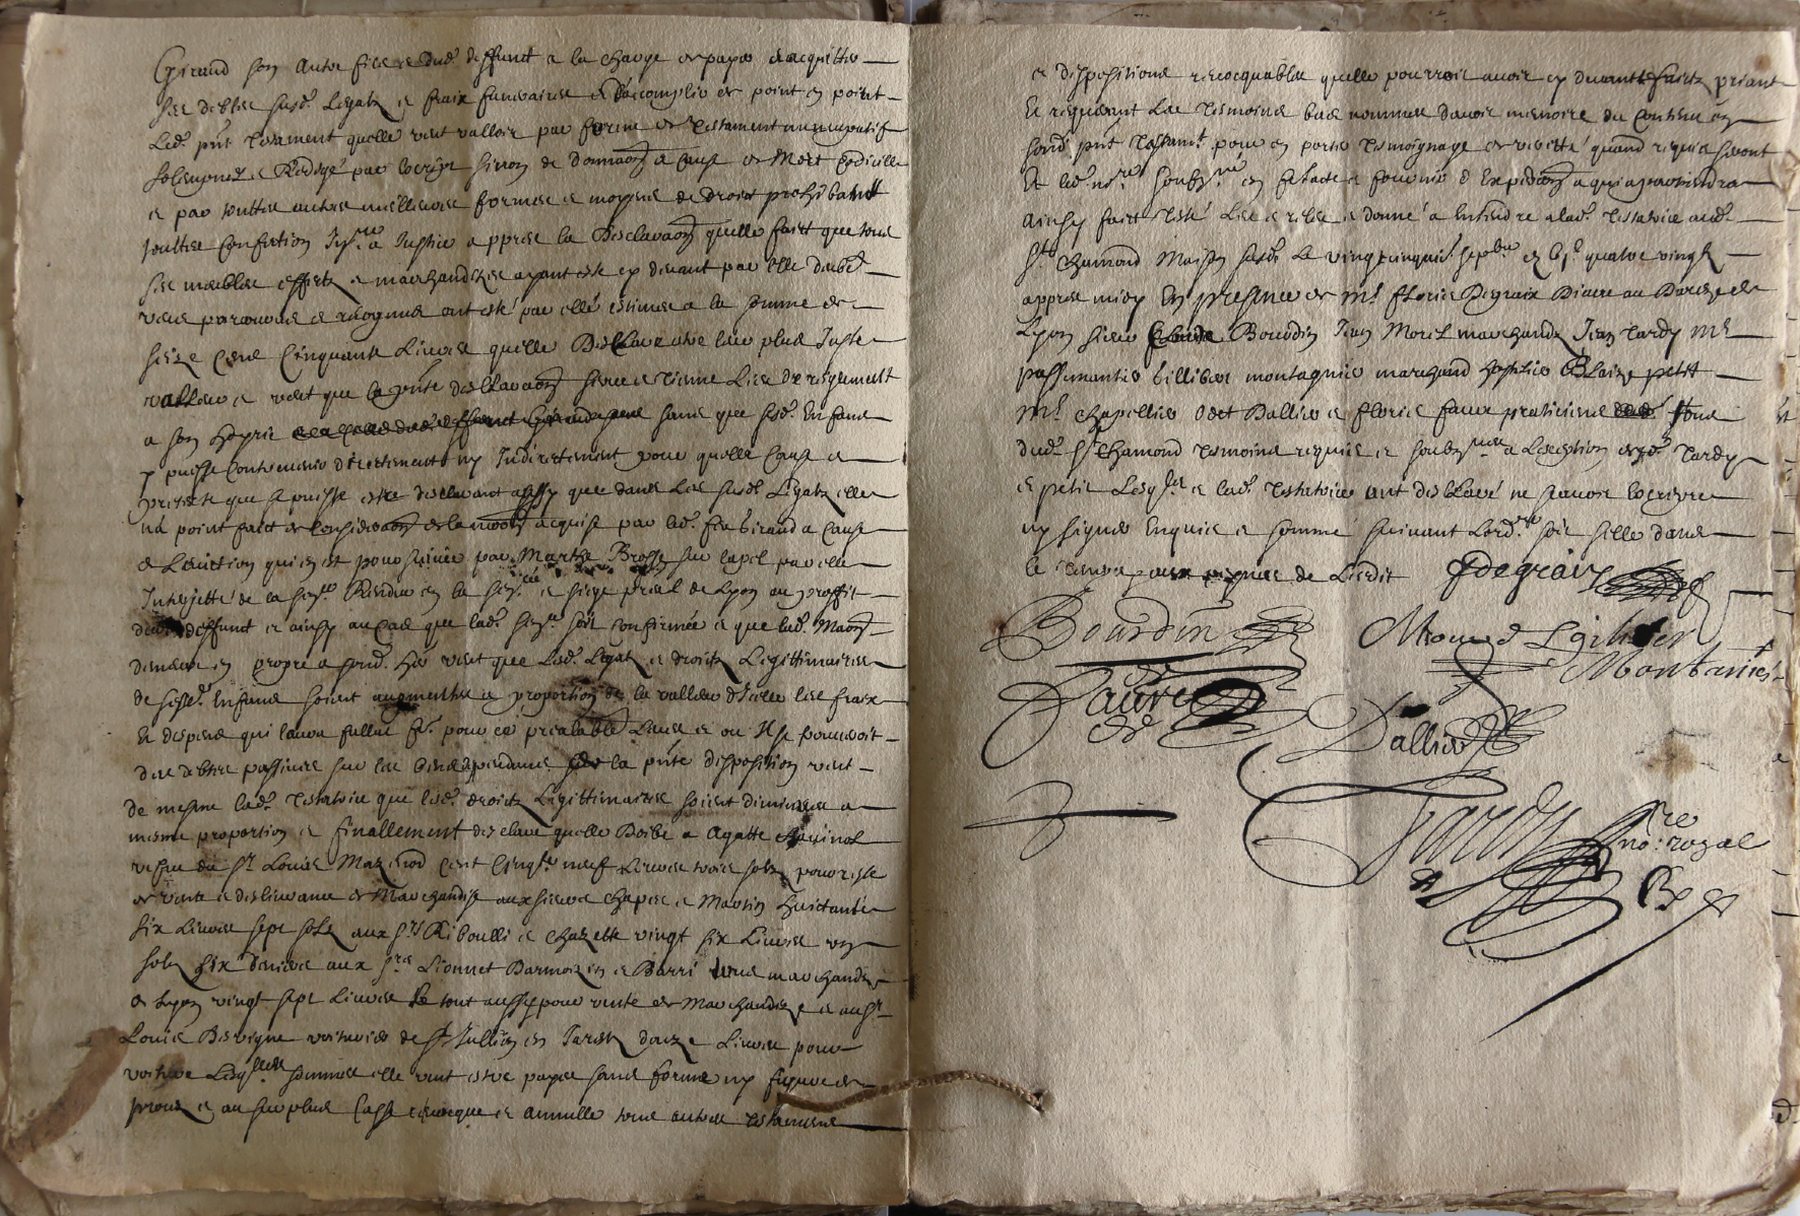 Giraud son autre filz et dud. deffunt a la charge de payer et acquitter
ses debtes susd. legatz et fraix funeraires et d'accomplir de point en point
led. pnt testament quelle veut valloir par forme de testament nuncupatif
solempnel et redigé par escript sinon de donnaon a cause de mort codicille
et par touttes autres meilleures formes et moyens de droict prohibant
touttes confection
ses meubles effectz et marchandizes ayant esté cy devant par elle
veus parcourus et recogneus ont esté par elle estimés a la somme de
seize cens cinquante livres quelle desclaire estre leur plus juste
valleur et veut que la pnte desclaraon serve et tienne lieu de reglement
a son hoyrie sans que sesd. enfans
y puisse contrevenir directement ny indirectement pour quelle cause et
pretexte que se puisse estre desclarant aussy que dans les susd. legatz elle
na point faict de consideraon de la maon acquise par led. feu Giraud a cause
de leviction qui en est poursuivie par Marthe Brosse sur lapel par elle
interjetté de la sen. rendue en la sen. et siege pnal de Lyon au proffit
dud. deffunt et ainsy au cas que lad. sen. soit confirmée et que lad. maon
demeure en propre a sond. her veut que lesd. legatz et droitz legittimaires
de sesd. enfans soient augmentés a proportion de la valleur dicelle les fraix
et despens qui laura fallut pour ce prealable levés et ou il se trouveroit
des debtes passives sur les la pnte disposition veut
de mesme lad. testatrice que lesd. droitz legittimaires soient diminués a
mesme proportion et finallement desclare quelle doibt a Agatte Chavinol
vefve du sr Louis Mazenod cent cinqte neuf livres trois solz pour reste
de vente et deslivrance de marchandise aux sieurs Chapuis et Mavrin huictante
six livres sept solz aux srs Riboulli et Chazette vingt six livres
solz six deniers aux srs Lionnet Darmezin et Barri tous marchands
de Lyon vingt sept livres le tout aussy pour vente de marchandize et au sr
Louis Desvigne voiturier de St Jullien en Jarest douze livres pour
voiture lesquelles sommes elle veut estre payés sans forme ny figure de
procès et au surplus casse revocque et annulle tous autres testamens
et dispositions revocquables quelle pourroit avoir cy devant faictz priant
et requerant les tesmoins bas nommés davoir memoire du contenu en
sond. pnt testamt. pour en porter tesmoignage de verité quand requis seront
et led. nore soubzné en faire acte et fournir d'expedion a qui apartiendra
ainsy faict testé leu et releu et donné a entendre a lad. testatrice aud.
St Chamond maison susd. le vingtcinquie. sepbre gbic quatre vingtz
appres midy en presence de me Floris Degraix diacre au diocese de
Lyon sieur Claude Bourdin Jean Morel marchandz Jean Tardy me
passimantier Gillibert Montagnier marchand hostelier Blaize Petit
me chapellier Odet Dallier et Floris Faure praticiens tous
dud. St Chamond tesmoins requis et soubznés a lexception desd. Tardy
et Petit lesqls et lad. testatrice ont desclaré ne sçavoir escrire
ny signer enquis et sommé suivant lord. soit sellé dans
le temps aux peynes de lesdit
FDegraix
Bourdin
Morel
Gilibert Montanier
Faure
Dallier
Tardy
nore royal